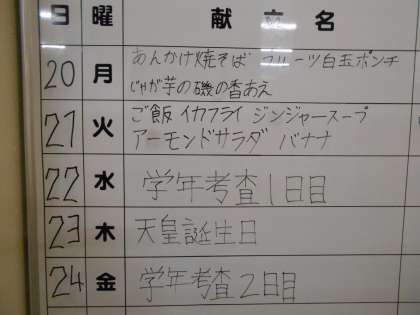 日 曜 献立名
20 月 あんかけ焼そば フルーツ白玉ポンチ
じゃが芋の磯の香あえ
21 火 ご飯 イカフライ ジンジャースープ
アーモンドサラダ バナナ
22 水 学年考査1日目
23 木 天皇誕生日
24 金 学年考査2日目